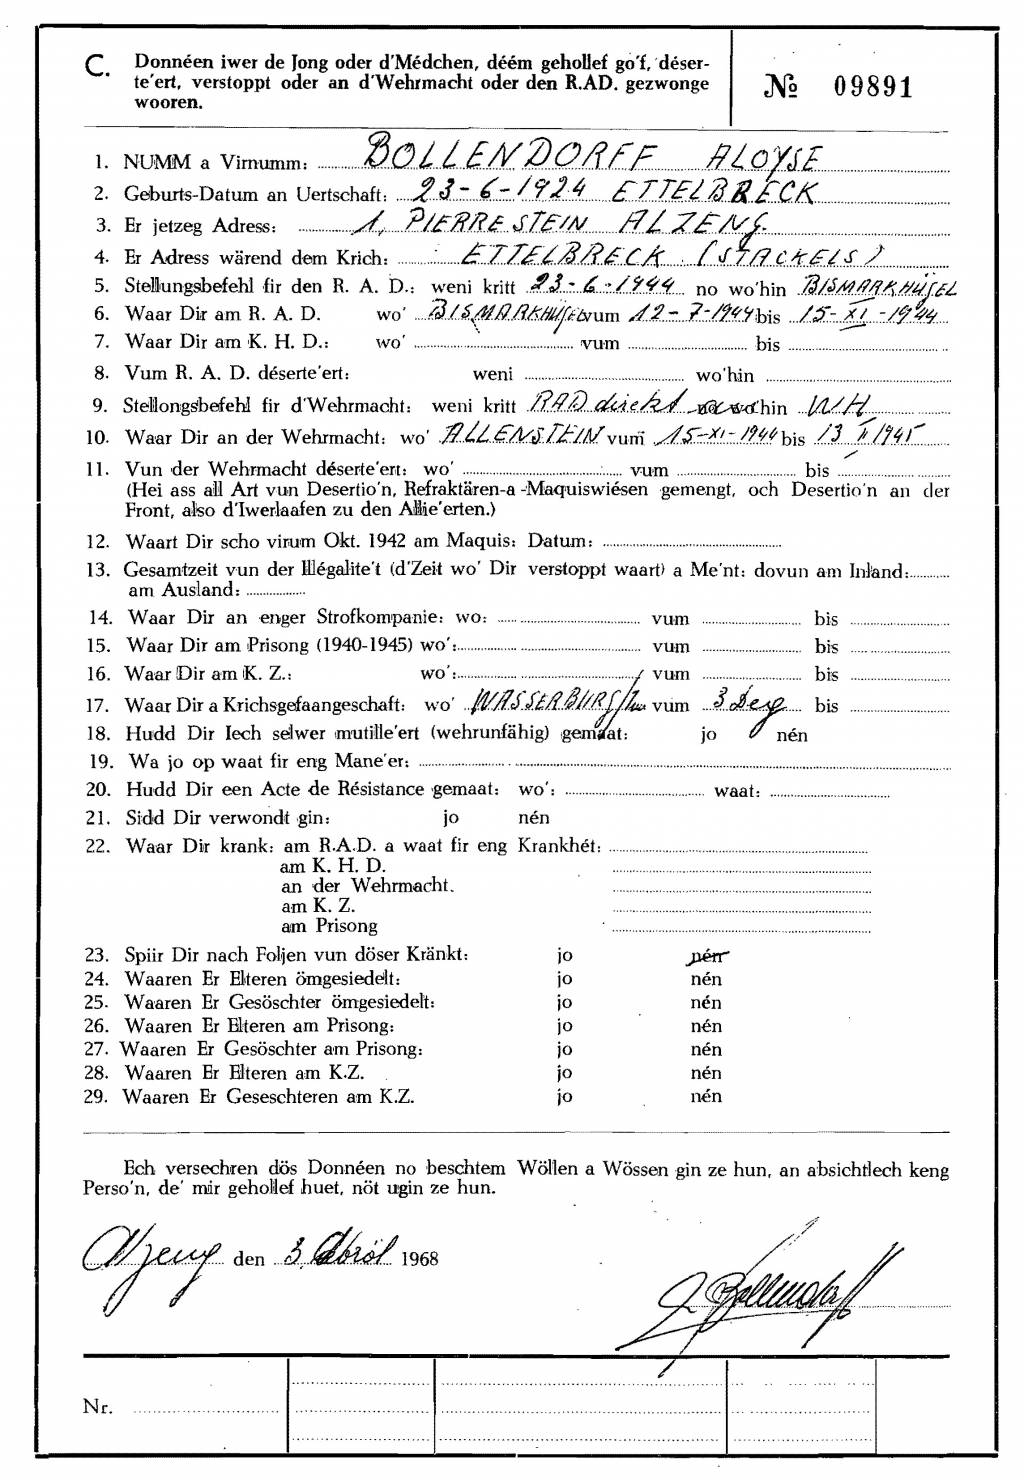 C. Donnéen iwer de Jong oder d'Médchen, déém gehollef go'f, déser-
te'ert, verstoppt oder an d'Wehrmacht oder den R.AD. gezwonge
wooren.
№ 09891
1. NUMM a Virnumm: BOLLENDORFF ALOYSE
2. Geburts-Datum an Uertschaft: 23-6-1924 ETTELBRECK
3. Er jetzeg Adress: 1, PIERRE STEIN ALZENG.
4. Er Adress wärend dem Krich: ETTELBRECK (STACKELS)
5. Stellungsbefehl fir den R. A. D.: weni kritt 23-6-1944 no wo'hin BISMARKHÜGEL
6. Waar Dir am R. A. D. wo' BISMARKHÜGEL vum 12-7-1944 bis 15-XI-1944
7. Waar Dir am K. H. D.: wo' vum bis
8. Vum R. A. D. déserte'ert: weni wo'hin
9. Stellongsbefehl fir d'Wehrmacht: weni kritt RAD direkt no wo'hin WH
10. Waar Dir an der Wehrmacht: wo' ALLENSTEIN vum 15-XI-1944 bis 13 II 1945
11. Vun der Wehrmacht déserte'ert: wo' vum bis
(Hei ass all Art vun Desertio'n, Refraktären-a -Maquiswiésen gemengt, och Desertio'n an der
Front, also d'Iwerlaafen zu den Allie'erten.)
12. Waart Dir scho virum Okt. 1942 am Maquis: Datum:
13. Gesamtzeit vun der Illégalite't (d'Zeit wo' Dir verstoppt waart) a Me'nt: dovun am Inland:
am Ausland:
14. Waar Dir an enger Strofkompanie: wo: vum bis
15. Waar Dir am Prisong (1940-1945) wo': vum bis
16. Waar Dir am K. Z.: wo': vum bis
17. Waar Dir a Krichsgefaangeschaft: wo' WASSERBURG/Inn vum 3 bis
18. Hudd Dir Iech selwer mutille'ert (wehrunfähig) gemaat: jo nén
19. Wa jo op waat fir eng Mane'er:
20. Hudd Dir een Acte de Résistance gemaat: wo': waat:
21. Sidd Dir verwondt gin: jo nén
22. Waar Dir krank: am R.A.D. a waat fir eng Krankhét:
am K. H. D.
an der Wehrmacht.
am K. Z.
am Prisong
23. Spiir Dir nach Foljen vun döser Kränkt: jo nén
24. Waaren Er Elteren ömgesiedelt: jo nén
25. Waaren Er Gesöschter ömgesiedelt: jo nén
26. Waaren Er Elteren am Prisong: jo nén
27. Waaren Er Gesöschter am Prisong: jo nén
28. Waaren Er Elteren am K.Z. jo nén
29. Waaren Er Geseschteren am K.Z. jo nén
Ech versechren dös Donnéen no beschtem Wöllen a Wössen gin ze hun, an absichtlech keng
Perso'n, de' mir gehollef huet, nöt ugin ze hun.
Alzeng den 3. Abröl 1968
Bollendorff
Nr.